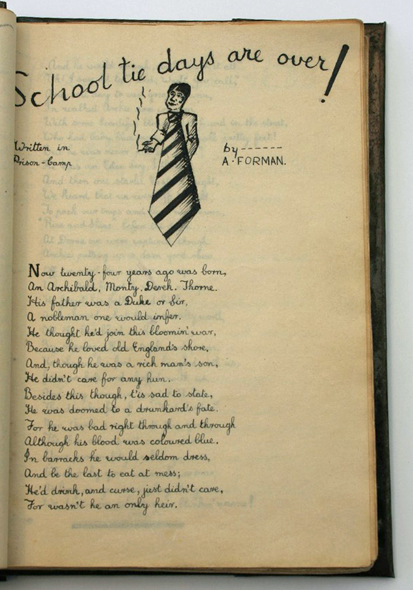 School tie days are over!
Written in
Prison-Camp
by------
A·FORMAN.
Now twenty-four years ago was born,
An Archibald, Monty, Derek. Thorne.
His father was a Duke or Sir,
A nobleman one would infer.
He thought he'd join this bloomin' war,
Because he loved old England's shore,
And, though he was a rich man's son,
He didn't care for any hun.
Besides this though, t'is sad to state,
He was doomed to a drunkard's fate.
For he was bad right through and through
Although his blood was coloured blue.
In barracks he would seldom dress,
And be the last to eat at mess;
He'd drink, and curse, just didn't care,
For wasn't he an only heir.